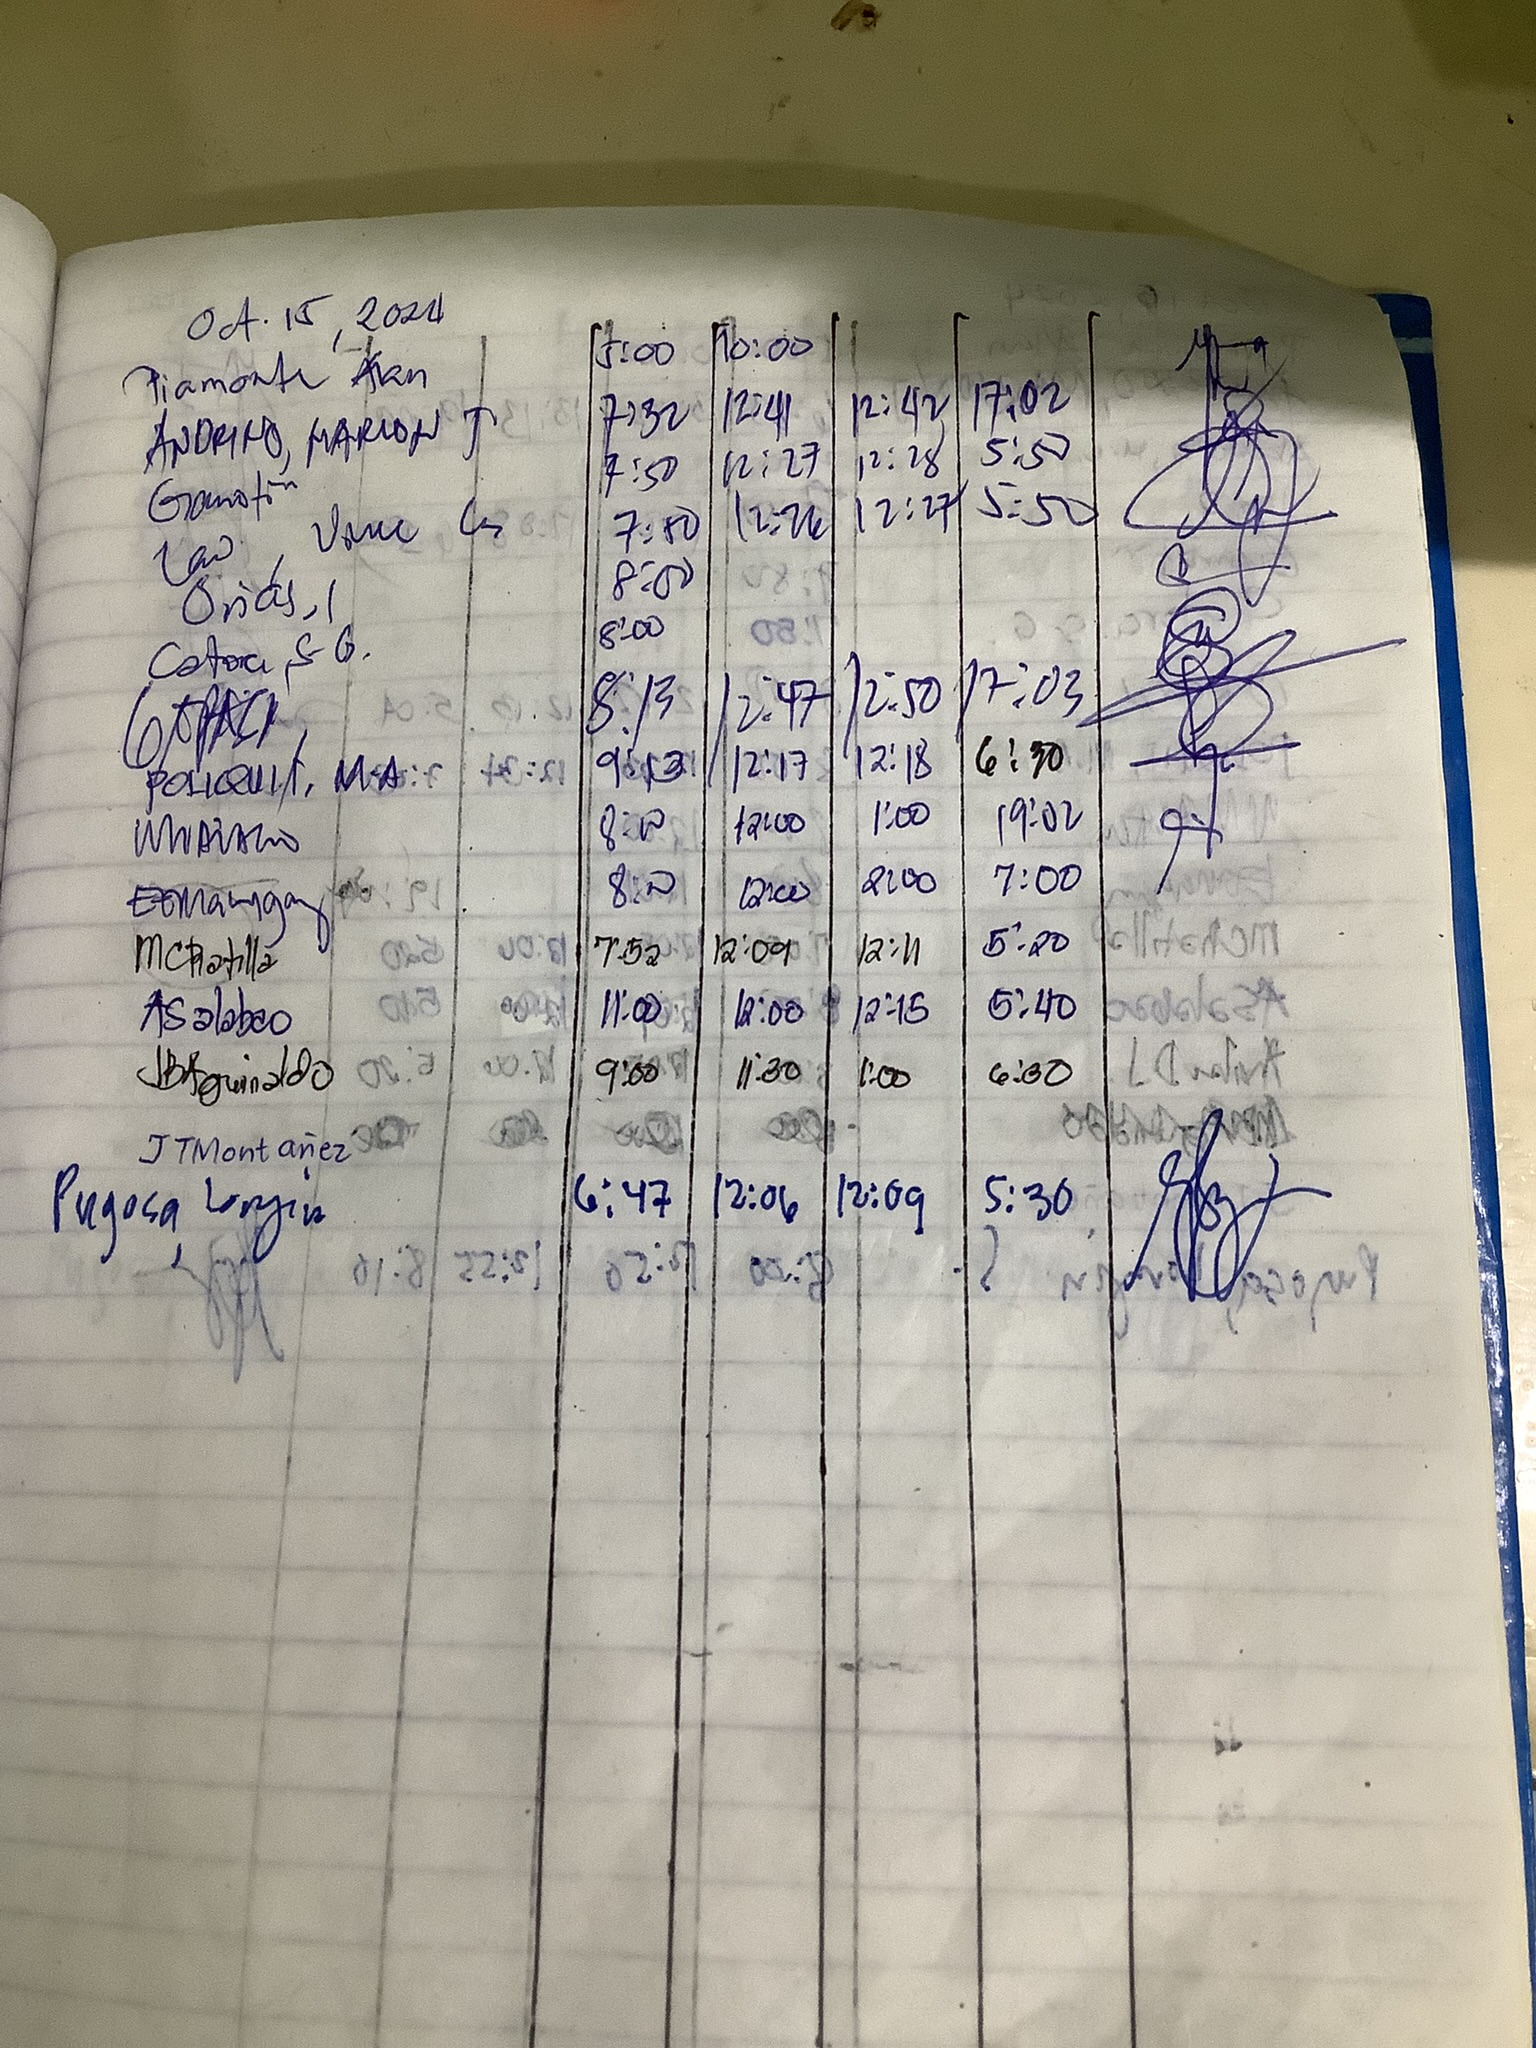 Oct. 15, 2024
Piamonte Alan 5:00 10:00
ANDRINO, MARION J 7:32 12:41 12:42 17:02
7:50 12:27 12:28 5:50
Lao, Vince 7:50 12:26 12:27 5:50
Orias, I 8:00
Catora, S G. 8:00
8:13 12:47 12:50 17:03
POLIQUIT, M.A 9:13 12:17 12:18 6:30
8:00 12:00 1:00 19:02
EGMamgay 8:00 12:00 2:00 7:00
MCRatilla 7:52 12:09 12:11 5:20
ASalabao 11:00 12:00 12:15 5:40
JBAguinaldo 9:00 11:30 1:00 6:30
JTMontañez
Pugosa, Lorgin 6:47 12:06 12:09 5:30